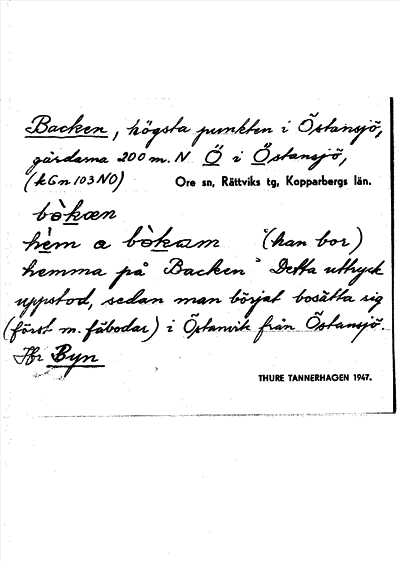 Backen, högsta punkten i Östansjö,
gårdarna 200 m. N Ö i Östansjö,
(kGn 103 NO) Ore sn, Rättviks tg, Kopparbergs län.
bòkæn
hèm a bòkam "(han bor)
hemma på Backen" Detta uttryck
uppstod, sedan man börjat bosätta sig
(först m. fäbodar) i Östanvik från Östansjö.
Jfr Byn
THURE TANNERHAGEN 1947.